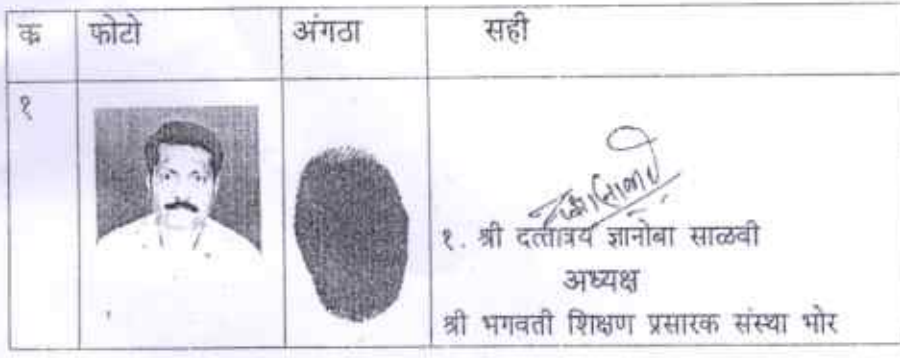 क्र फोटो अंगठा सही
१
१. श्री दत्तात्रय ज्ञानोबा साळवी
अध्यक्ष
श्री भगवती शिक्षण प्रसारक संस्था भोर